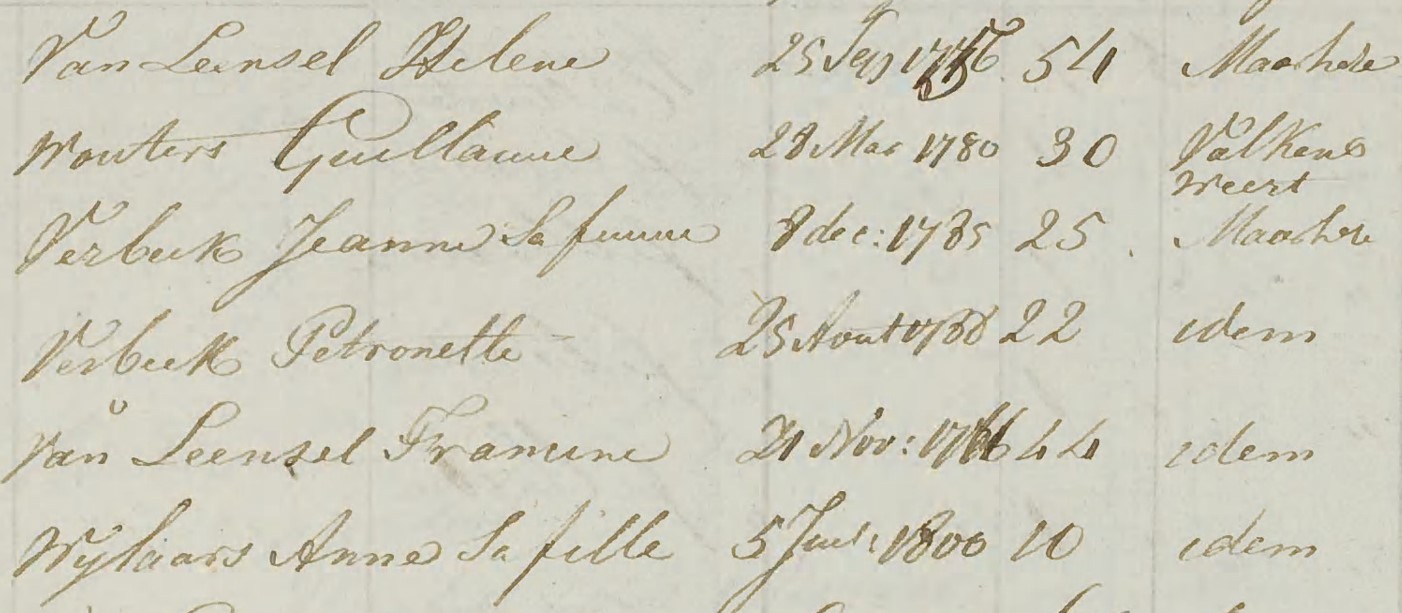 Van Leensel Helene 25 Sep 1756 54 Maarheze
Wouters Guillaume 28 Mar 1780 30 Valkens
weert
Verbeek Jeanne Sa femme 8 dec: 1785 25 Maarheze
Verbeek Petronelle 25 Aout 1788 22 idem
Van Leensel Francine 21 Nov: 1766 44 idem
Wylaars Anne Sa fille 5 Juil: 1800 10 idem